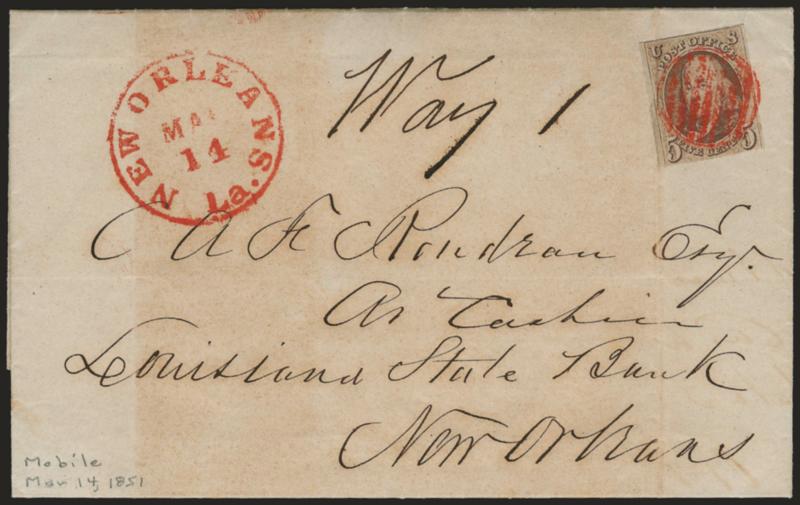 NEW ORLEANS La.
MAR
14
Way 1
U S
POST OFFICE
FIVE CENTS
5 5
A F Rondeau Esq.
As Cashier
Louisiana State Bank
New Orleans
Mobile
Mar 14, 1851